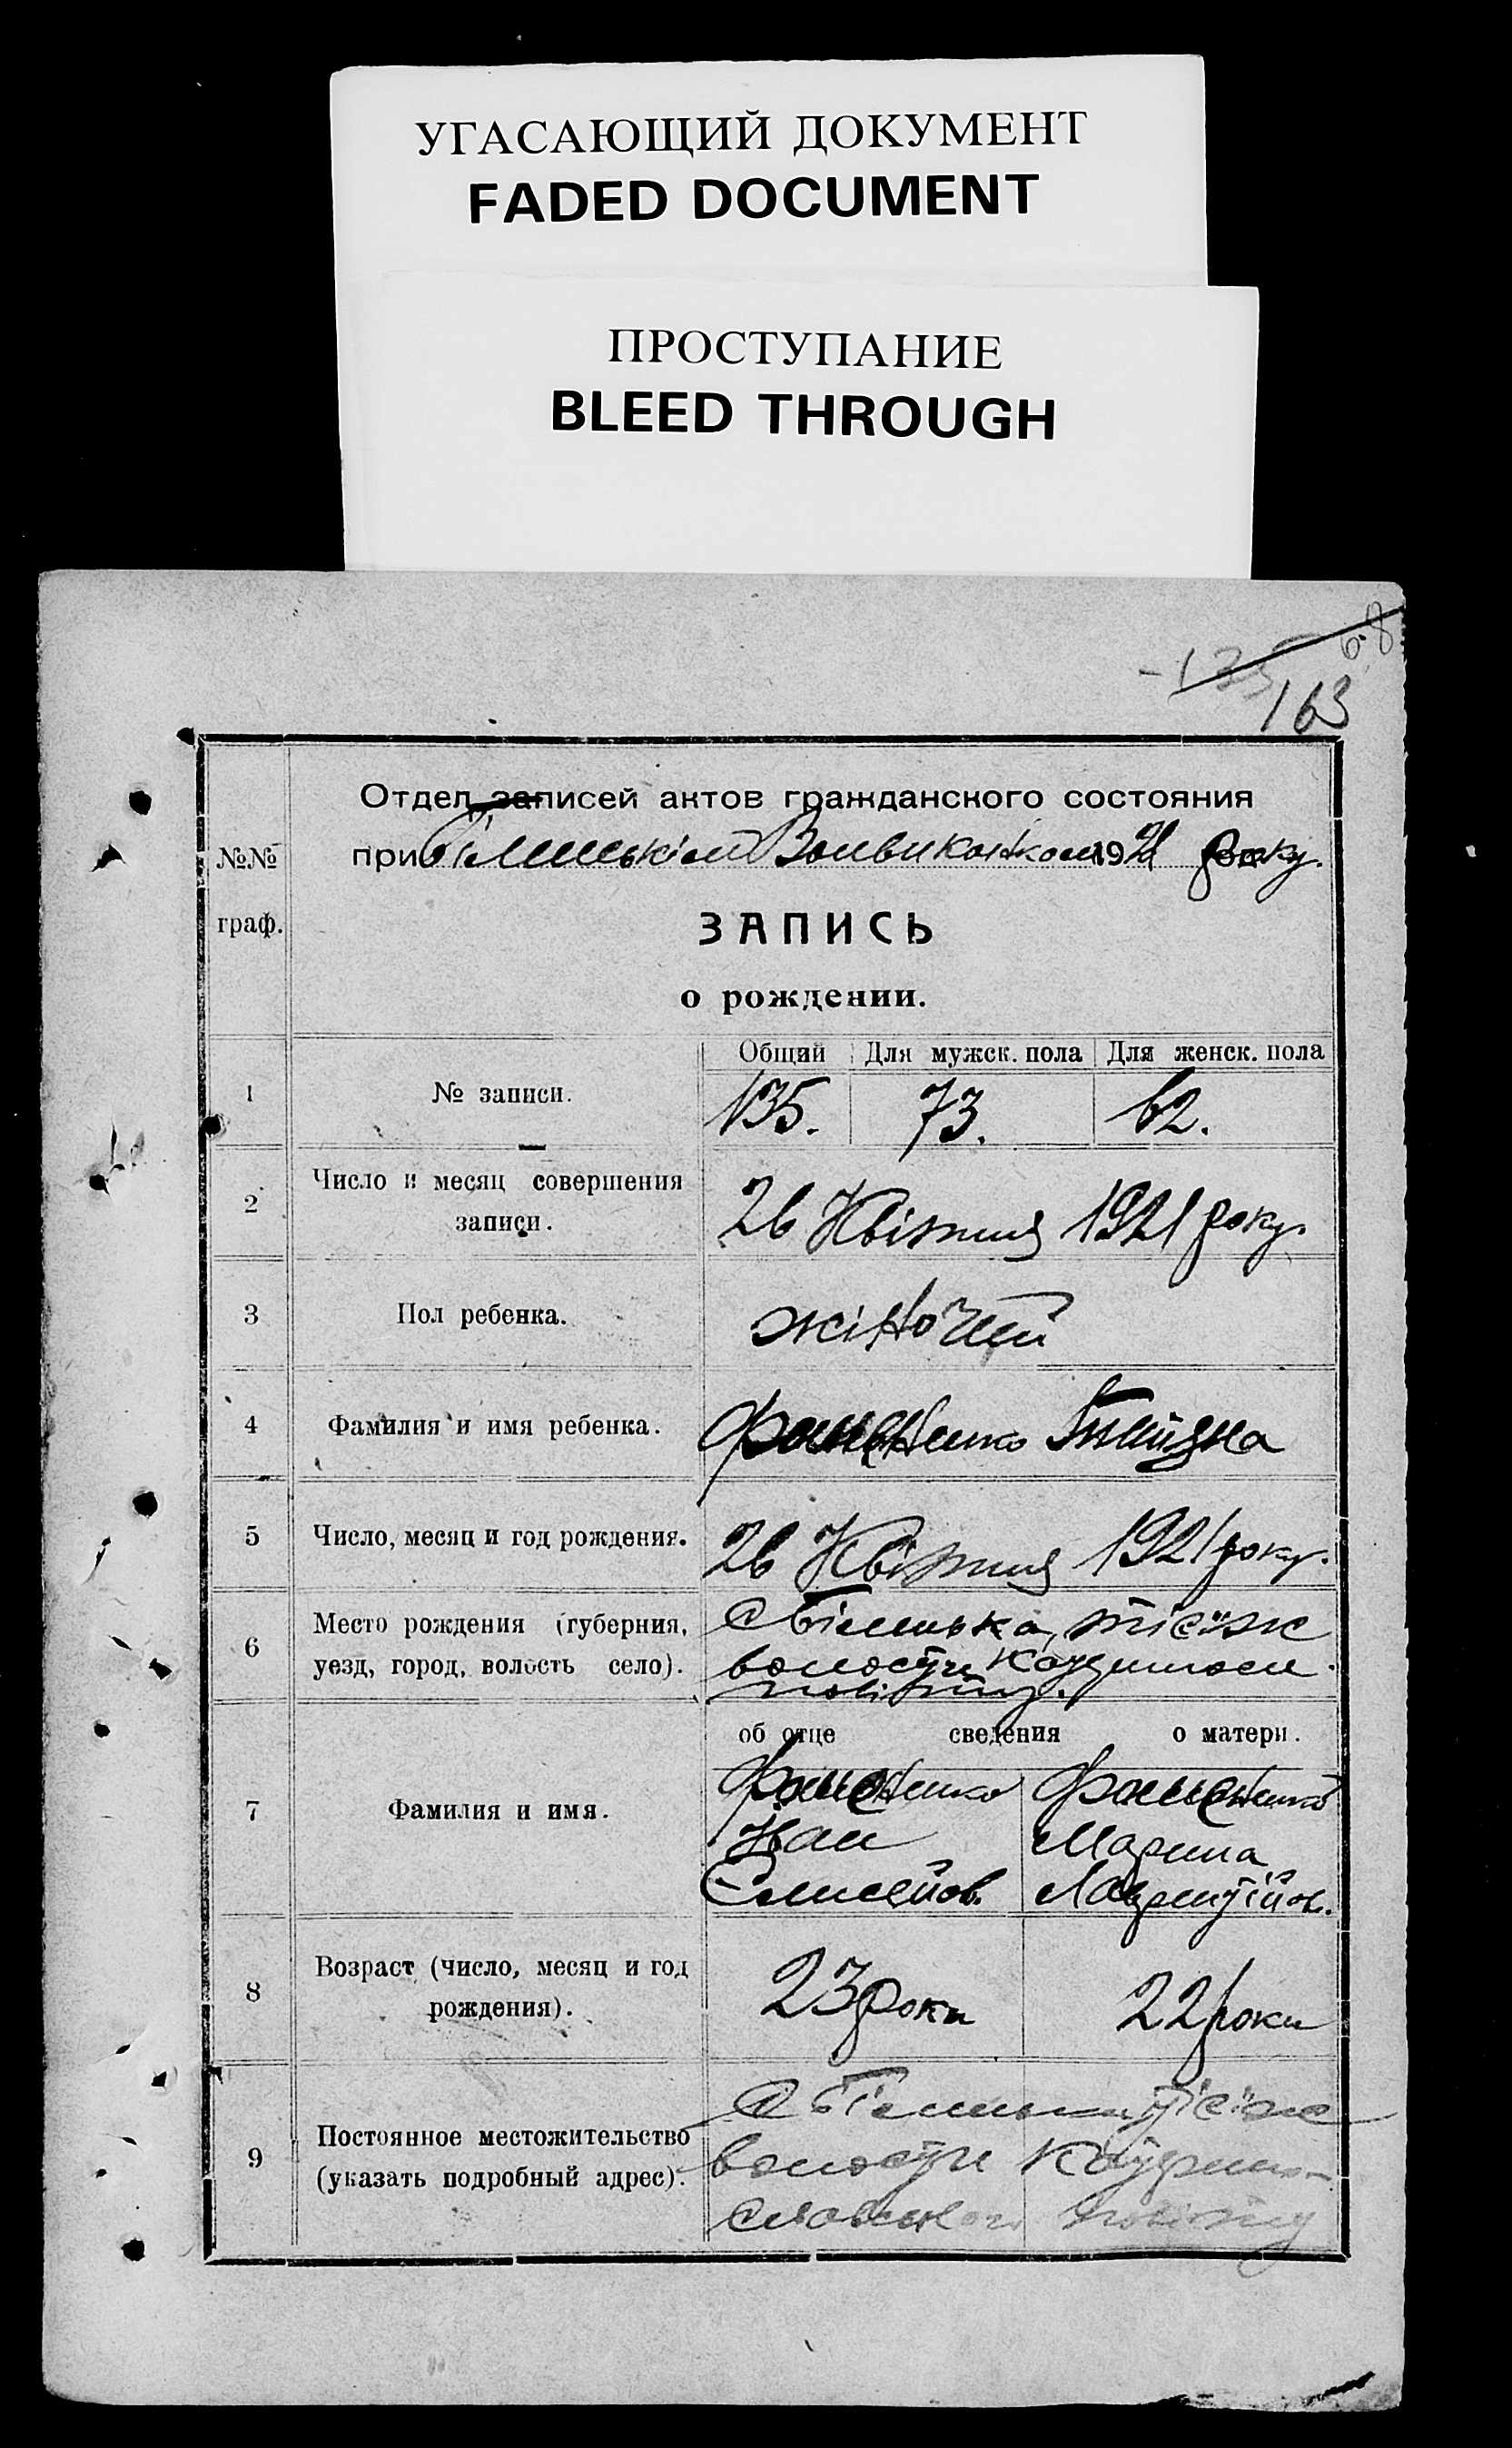 УГАСАЮЩИЙ ДОКУМЕНТ
FADED DOCUMENT
ПРОСТУПАНИЕ
BLEED THROUGH
68
-135
163
Отдел записей актов гражданского состояния
№№ граф.
при Білицькім Волвиконкомі 1921 року.
ЗАПИСЬ
о рождении.
Общий Для мужск. пола Для женск. пола
1 № записи. 135. 73. 62.
2 Число и месяц совершения
записи. 26 Квітня 1921 року.
3 Пол ребенка. жіночий
4 Фамилия и имя ребенка.
5 Число, месяц и год рождения. 26 Квітня 1921 року.
6 Место рождения (губерния, с Білицька, тієїж
уезд, город, волость село). волости
повіту.
об отце сведения о матери.
7 Фамилия и имя.
Іван Марина
Елисейов.
8 Возраст (число, месяц и год
рождения). 23 роки 22 роки
9 с тієїж
Постоянное местожительство
(указать подробный адрес). волости
повіту